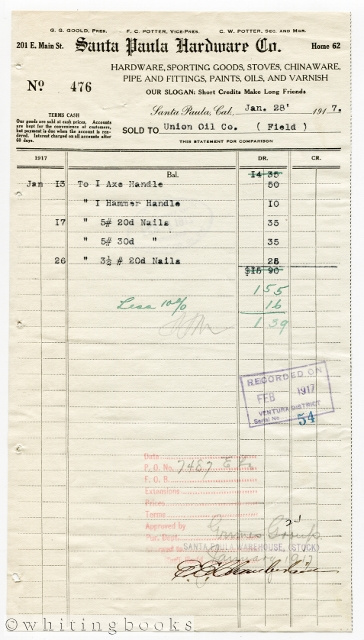 G. G. GOOLD, PRES. F. C. POTTER, VICE-PRES. C. W. POTTER, SEC. AND MAN.
201 E. Main St. Santa Paula Hardware Co. Home 62
HARDWARE, SPORTING GOODS, STOVES, CHINAWARE,
PIPE AND FITTINGS, PAINTS, OILS, AND VARNISH
OUR SLOGAN: Short Credits Make Long Friends
No. 476
Santa Paula, Cal. Jan. 28' 1917.
TERMS CASH
Our goods are sold at cash prices. Accounts
are kept for the convenience of customers,
but payment is due when the account is ren-
dered. Interest charged on all accounts after
60 days.
SOLD TO Union Oil Co. ( Field )
THIS STATEMENT FOR COMPARISON
1917 DR. CR.
Bal. 14 35
Jan 13 To I Axe Handle 50
" I Hammer Handle 10
17 " 5# 20d Nails 35
" 5# 30d " 35
26 " 3½ # 20d Nails 25
$15 90
1 55
Less 10% 16
1 39
RECORDED ON
FEB 1917
VENTURA DISTRICT
Serial No. 54
Date
P. O. No. 7467
F. O. B.
Extensions
Prices
Terms
Approved by
Pur. Dept.
SANTA PAULA WAREHOUSE, (STOCK)
January 1917
©whitingbooks